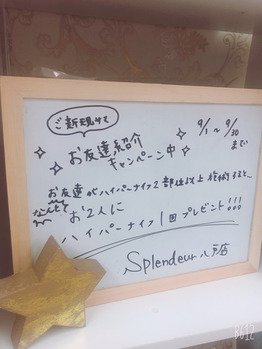 ご新規サマ
お友達紹介
キャンペーン中
9/1 ~ 9/30
まで
お友達がハイパーナイフ2部位以上施術すると…
なんと
お2人に
ハイパーナイフ1回プレゼント!!!
Splendeur八戸店